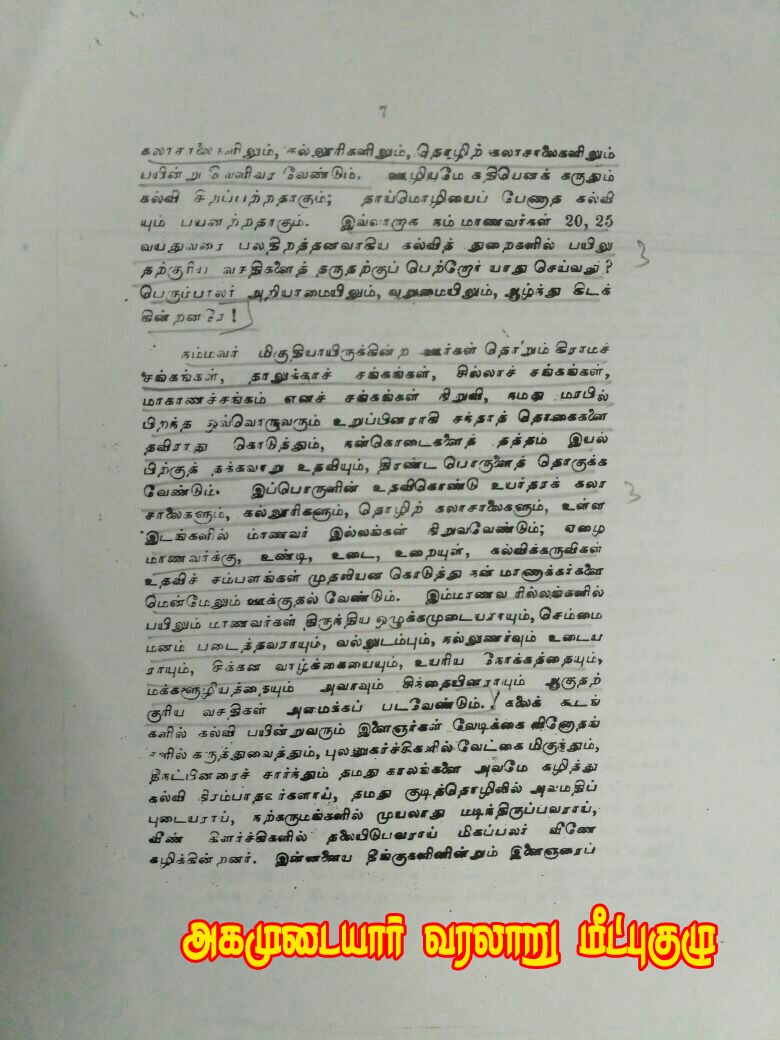 7
கலாசாலைகளிலும், கல்லூரிகளிலும், தொழிற் கலாசாலைகளிலும்
பயின்று வெளிவர வேண்டும். ஊழியமே கதியெனக் கருதும்
கல்வி சிறப்பற்றதாகும்; தாய்மொழியைப் பேணாத கல்வி
யும் பயனற்றதாகும். இவ்வாறாக நம் மாணவர்கள் 20, 25
வயதுவரை பலதிறத்தனவாகிய கல்வித் துறைகளில் பயிலு
தற்குரிய வசதிகளைத் தருதற்குப் பெற்றோர் யாது செய்வது?
பெரும்பாலர் அறியாமையிலும், வறுமையிலும், ஆழ்ந்து கிடக்
கின்றனரே!
3
நம்மவர் மிகுதியாயிருக்கின்ற ஊர்கள் தொறும் கிராமச்
சங்கங்கள், தாலுக்காச் சங்கங்கள், சில்லாச் சங்கங்கள்,
மாகாணச்சங்கம் எனச் சங்கங்கள் நிறுவி, நமது மரபில்
பிறந்த ஒவ்வொருவரும் உறுப்பினராகி சந்தாத் தொகைகளை
தவிராது கொடுத்தும், நன்கொடைகளைத் தத்தம் இயல்
பிற்குத் தக்கவாறு உதவியும், திரண்ட பொருளைத் தொகுக்க
வேண்டும். இப்பொருளின் உதவிகொண்டு உயர்தரக் கலா
3
சாலைகளும், கல்லூரிகளும், தொழிற் கலாசாலைகளும், உள்ள
இடங்களில் மாணவர் இல்லங்கள் நிறுவவேண்டும்; ஏழை
மாணவர்க்கு, உண்டி, உடை, உறையுள், கல்விக்கருவிகள்
உதவிச் சம்பளங்கள் முதலியன கொடுத்து நன் மாணாக்கர்களை
மென்மேலும் ஊக்குதல் வேண்டும். இம்மாணவ ரில்லங்களில்
பயிலும் மாணவர்கள் திருந்திய ஒழுக்கமுடையராயும், செம்மை
மனம் படைத்தவராயும், வல்லுடம்பும், நல்லுணர்வும் உடைய
ராயும், சிக்கன வாழ்க்கையையும், உயரிய நோக்கத்தையும்,
மக்களூழியத்தையும் அவாவும் சிந்தையினராயும் ஆகுதற்
குரிய வசதிகள் அமைக்கப் படவேண்டும். கலைக் கூடங்
களில் கல்வி பயின்றுவரும் இளைஞர்கள் வேடிக்கை வினோதங்
களில் கருத்துவைத்தும், புலனுகர்ச்சிகளில் வேட்கை மிகுந்தும்,
தீநட்பினரைச் சார்ந்தும் தமது காலங்களை அவமே கழித்து
கல்வி நிரம்பாதவர்களாய், தமது குடித்தொழிலில் அவமதிப்
புடையராய், நற்கருமங்களில் முயலாது மடிந்திருப்பவராய்,
வீண் கிளர்ச்சிகளில் தலையிடுபவராய் மிகப்பலர் வீணே
கழிக்கின்றனர். இன்னனைய தீங்குகளினின்றும் இளைஞரைப்
அகமுடையார் வரலாறு மீட்புகுழு